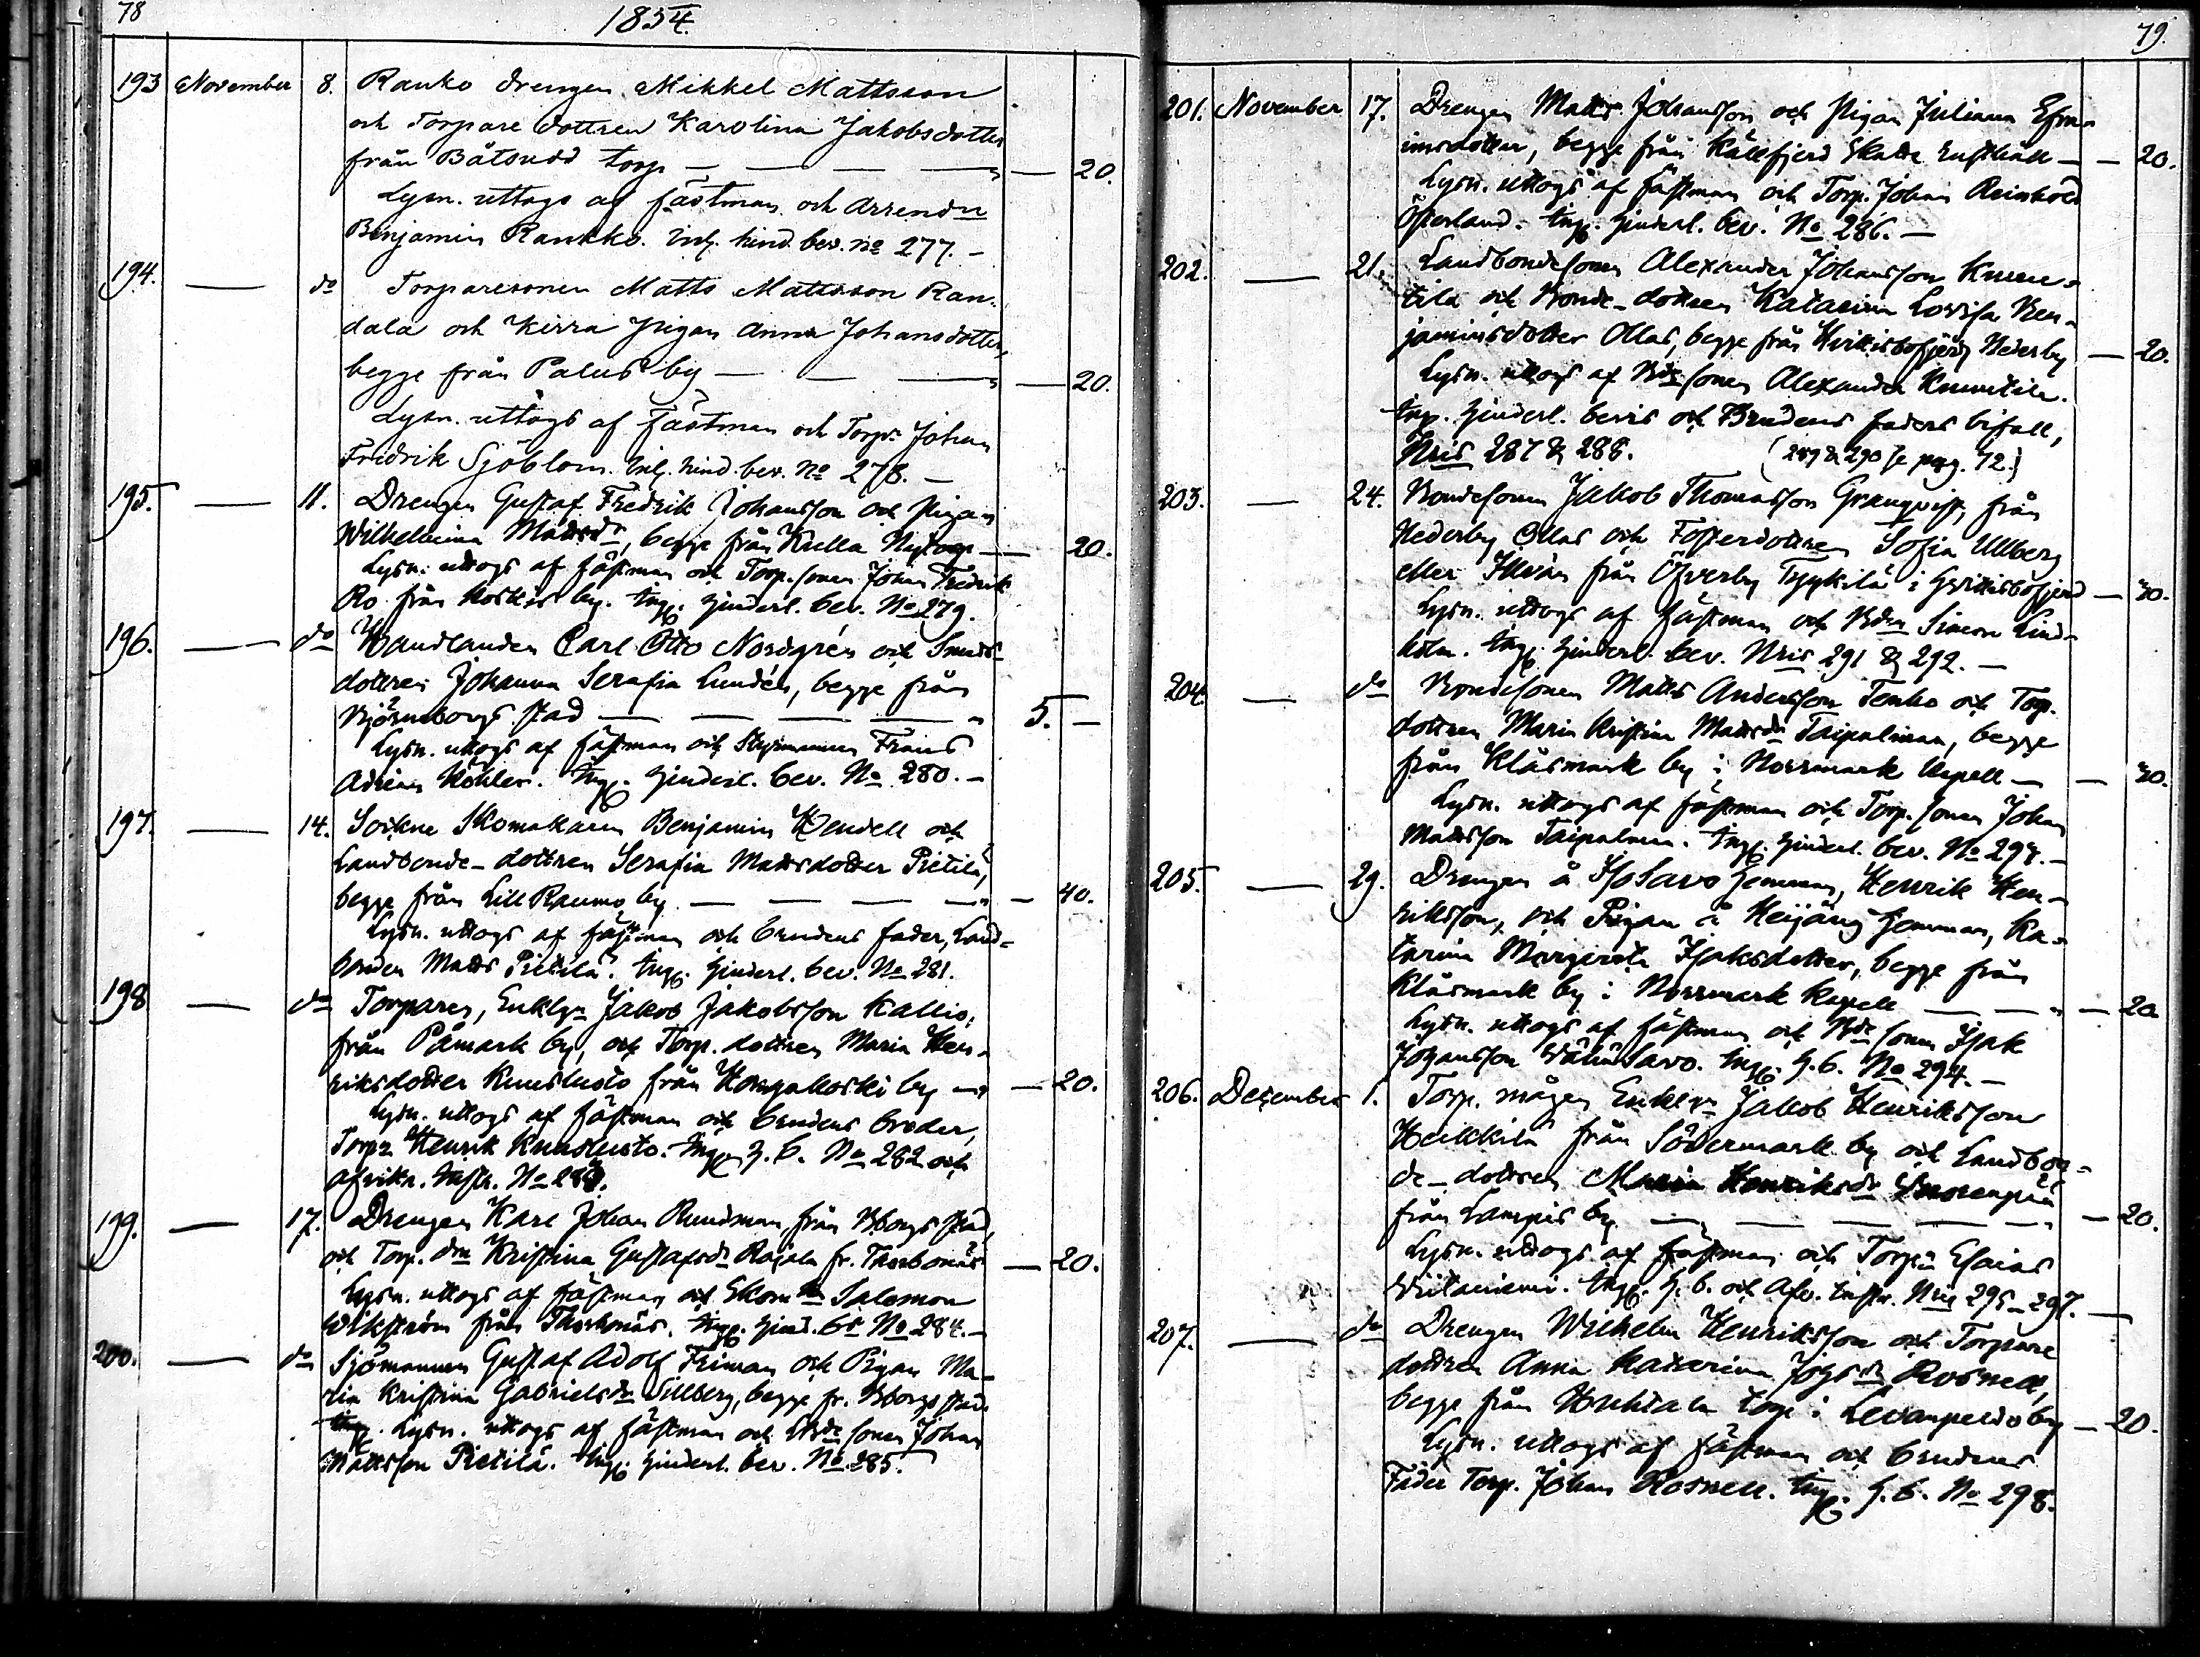 78
1854.
193 November 8. Ranko drengen Mikkel Mattsson
och Torpare dottren Karolina Jakobsdotter
från Båtsudd torp — — — — 20.
Lysn. uttogs af fästman och Arrendn
Benjamin Rankko. Inl. hind. bev. No 277. —
194. — do Torparesonen Matts Mattsson Ran-
dala och Kirra Pigan Anna Johansdotter,
begge från Palus by — — — — 20.
Lysn. uttogs af Fästman och Torp. Johan
Fredrik Sjöblom. Inl. hind. bev. No 278. —
195. — 11. Drengen Gustaf Fredrik Johansson och Pigan
Wilhelmina Mattsdr, begge från Krella Nytorp — 20.
Lysn. uttogs af fästman och Torp. sonen Johan Fredrik
Ro från Koskis by. Ing. hinderl. bev. No 279.
196. — do Handlanden Carl Otto Nordgrén och Smeds-
dottren Johanna Serafia Lundén, begge från
Björneborgs stad — — — — 5. —
Lysn. uttogs af fästman och Styrmannen Frans
Adrian Köhler. Ing. hinderl. bev. No 280. —
197. — 14. Sockne Skomakaren Benjamin Wendell och
Landbonde-dottren Serafia Mattsdotter Pietilä,
begge från Lill Raumo by — — — — 40.
Lysn. uttogs af fästman och brudens fader, Land-
bonden Matts Pietilä. Ing. hinderl. bev. No 281.
198 — do Torparen, Enkl. Jakob Jakobsson Kallio,
från Påmark by, och Torp. dottren Maria Hen-
riksdotter Kuuslusto från Kongakoski by — — 20.
Lysn. uttogs af fästman och brudens broder,
Torp. Henrik Kuuslusto. Ing. h. b. No 282 och
afvikn. Instr. No 283.
199. — 17. Drengen Karl Johan Rundman, från Bborgs stad,
och Torp. drn Kristina Gustafsdr Rajala fr. Thorbonäs — 20.
Lysn. uttogs af fästman och Skom. Salomon
Wikström från Thorbonäs. Ing. hind. bs No 284. —
200. — do Sjömannen Gustaf Adolf Friman och Pigan Ma-
ria Kristina Gabrielsdr Sillberg, begge fr. Bborgs stad.
Lysn. uttogs af fästman och Bde sonen Johan
Mattsson Pietilä. Ing. hinderl. bev. No 285.
79.
201. November 17. Drengen Matts Johansson och Pigan Juliana Efra-
imsdotter, begge från Källfjerd Skatte rusthåll — — 20.
Lysn. uttogs af fästman och Torp. Johan Reinhold
Österlund. Ing. hinderl. bev. No 286. —
202. — 21. Landbondesonen Alexander Johansson Knuu-
tila och Bonde-dottren Katarina Lovisa Ben-
jaminsdotter Ollas, begge från Hvittisbofjerd Nederby — 20.
Lysn. uttogs af Bde sonen Alexander Knuutila.
Ing. hinderl. bevis och Brudens faders bifall,
Nris 287 & 288. (289 & 290 se pag. 72.)
203. — 24. Bondesonen Jakob Thomasson Granqvist, från
Nederby Ollas och Fosterdottren Sofia Ullberg
eller Ilivan från Öfverby Tyykilä i Hvittisbofjerd — 30.
Lysn. uttogs af fästman och Bden Simon Lind-
holm. Ing. hinderl. bev. Nris 291 & 292. —
204. — do Bondesonen Matts Andersson Tenko och Torp.
dottren Maria Kristina Mattsdr Taipalman, begge
från Klåsmark by i Norrmark Kapell — — 30.
Lysn. uttogs af fästman och Torp. sonen Johan
Mattsson Taipalman. Ing. hinderl. bev. No 293. —
205. — 29. Drengen å Iso Savo hemman, Henrik Hen-
riksson, och Pigan å Heijäng hemman, Ka-
tarina Margareta Isaksdotter, begge från
Klåsmark by i Norrmark Kapell — — — 20
Lysn. uttogs af fästman och Bde sonen Isak
Johansson Wähä Savo. Ing. h. b. No 294. —
206. December 1. Torp. mågen Enkl. Jakob Henriksson
Heikkilä från Södermark by och Landbon-
de-dottren Maria Henriksdr
från Lampis by — — — — — 20.
Lysn. uttogs af fästman och Torp. Esaias
Wiitaniemi. Ing. h. b. och Afv. Instr. Nris 295–297. —
207. — do Drengen Wilhelm Henriksson och Torpare
dottren Anna Katarina Johsdr Rosnell,
begge från Huhdala torp i Levanpeldo by — 20.
Lysn. uttogs af fästman och brudens
Fader Torp. Johan Rosnell. Ing. h. b. No 298.